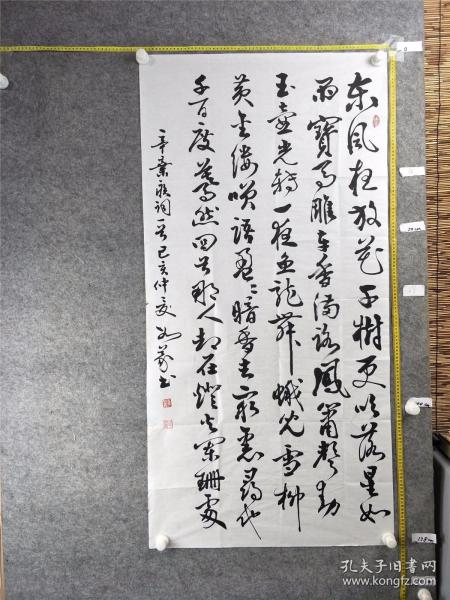 东风夜放花千樹更吹落星如
雨寶马雕车香满路鳳箫聲动
玉壶光转一夜鱼龙舞蛾儿雪柳
黄金缕笑语盈〻暗香去众裏尋他
千百度蓦然回首那人却在燈火阑珊處
辛棄疾词一首己亥仲夏书
孔夫子旧书网
www.kongfz.com